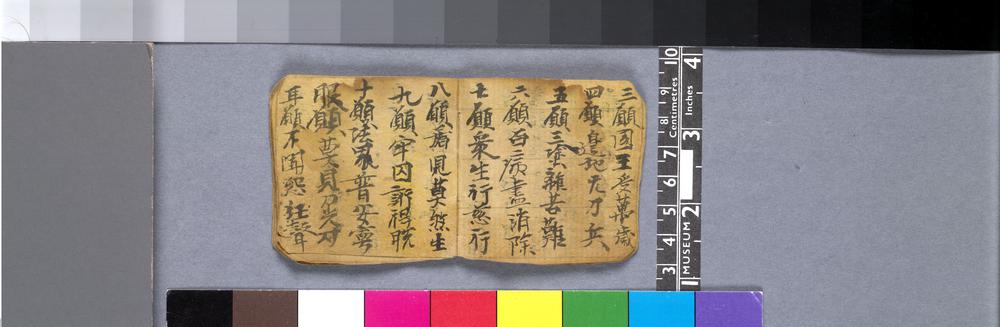 三願國王受萬歲
四願邊地无刀兵
五願三塗離苦難
六願百病盡消除
七願眾生行慈行
八願屠兒莫煞生
九願牢囚訴得脫
十願法界普安寧
眼願莫見刀光刃
耳願不聞怨枉聲
10 9 8 7 6 5 4 3
Centimetres
4 3 2 1
Inches
MUSEUM